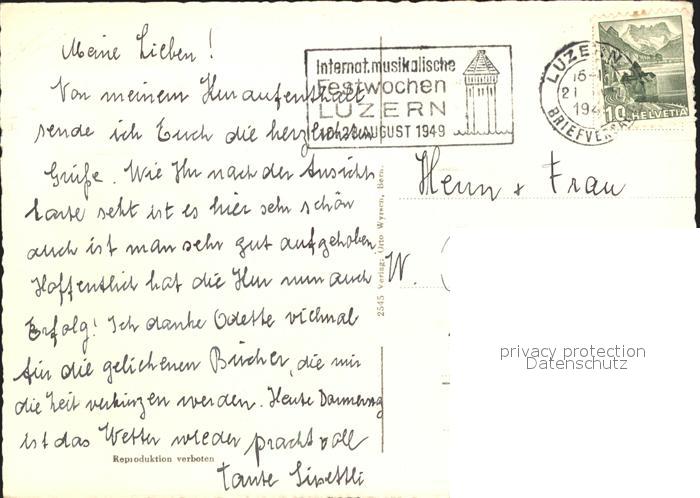 Meine Lieben!
Von meinem Kuraufenthalt
sende ich Euch die herzlichsten
Grüße. Wie Ihr nach der Ansichts
karte seht ist es hier sehr schön
auch ist man sehr gut aufgehoben
Hoffentlich hat die Kur nun auch
Erfolg! Ich danke Odette vielmal
für die geliehenen Bücher, die mir
die Zeit verkürzen werden. Heute Donnerstag
ist das Wetter wieder prachtvoll
Tante
Reproduktion verboten
2545 Verlag: Otto Wyrsch, Bern.
Internat. musikalische
Festwochen
LUZERN
10.-28. AUGUST 1949
LUZERN
21
194
BRIEFVERSAND
10 HELVETIA
Herrn + Frau
W.
privacy protection
Datenschutz